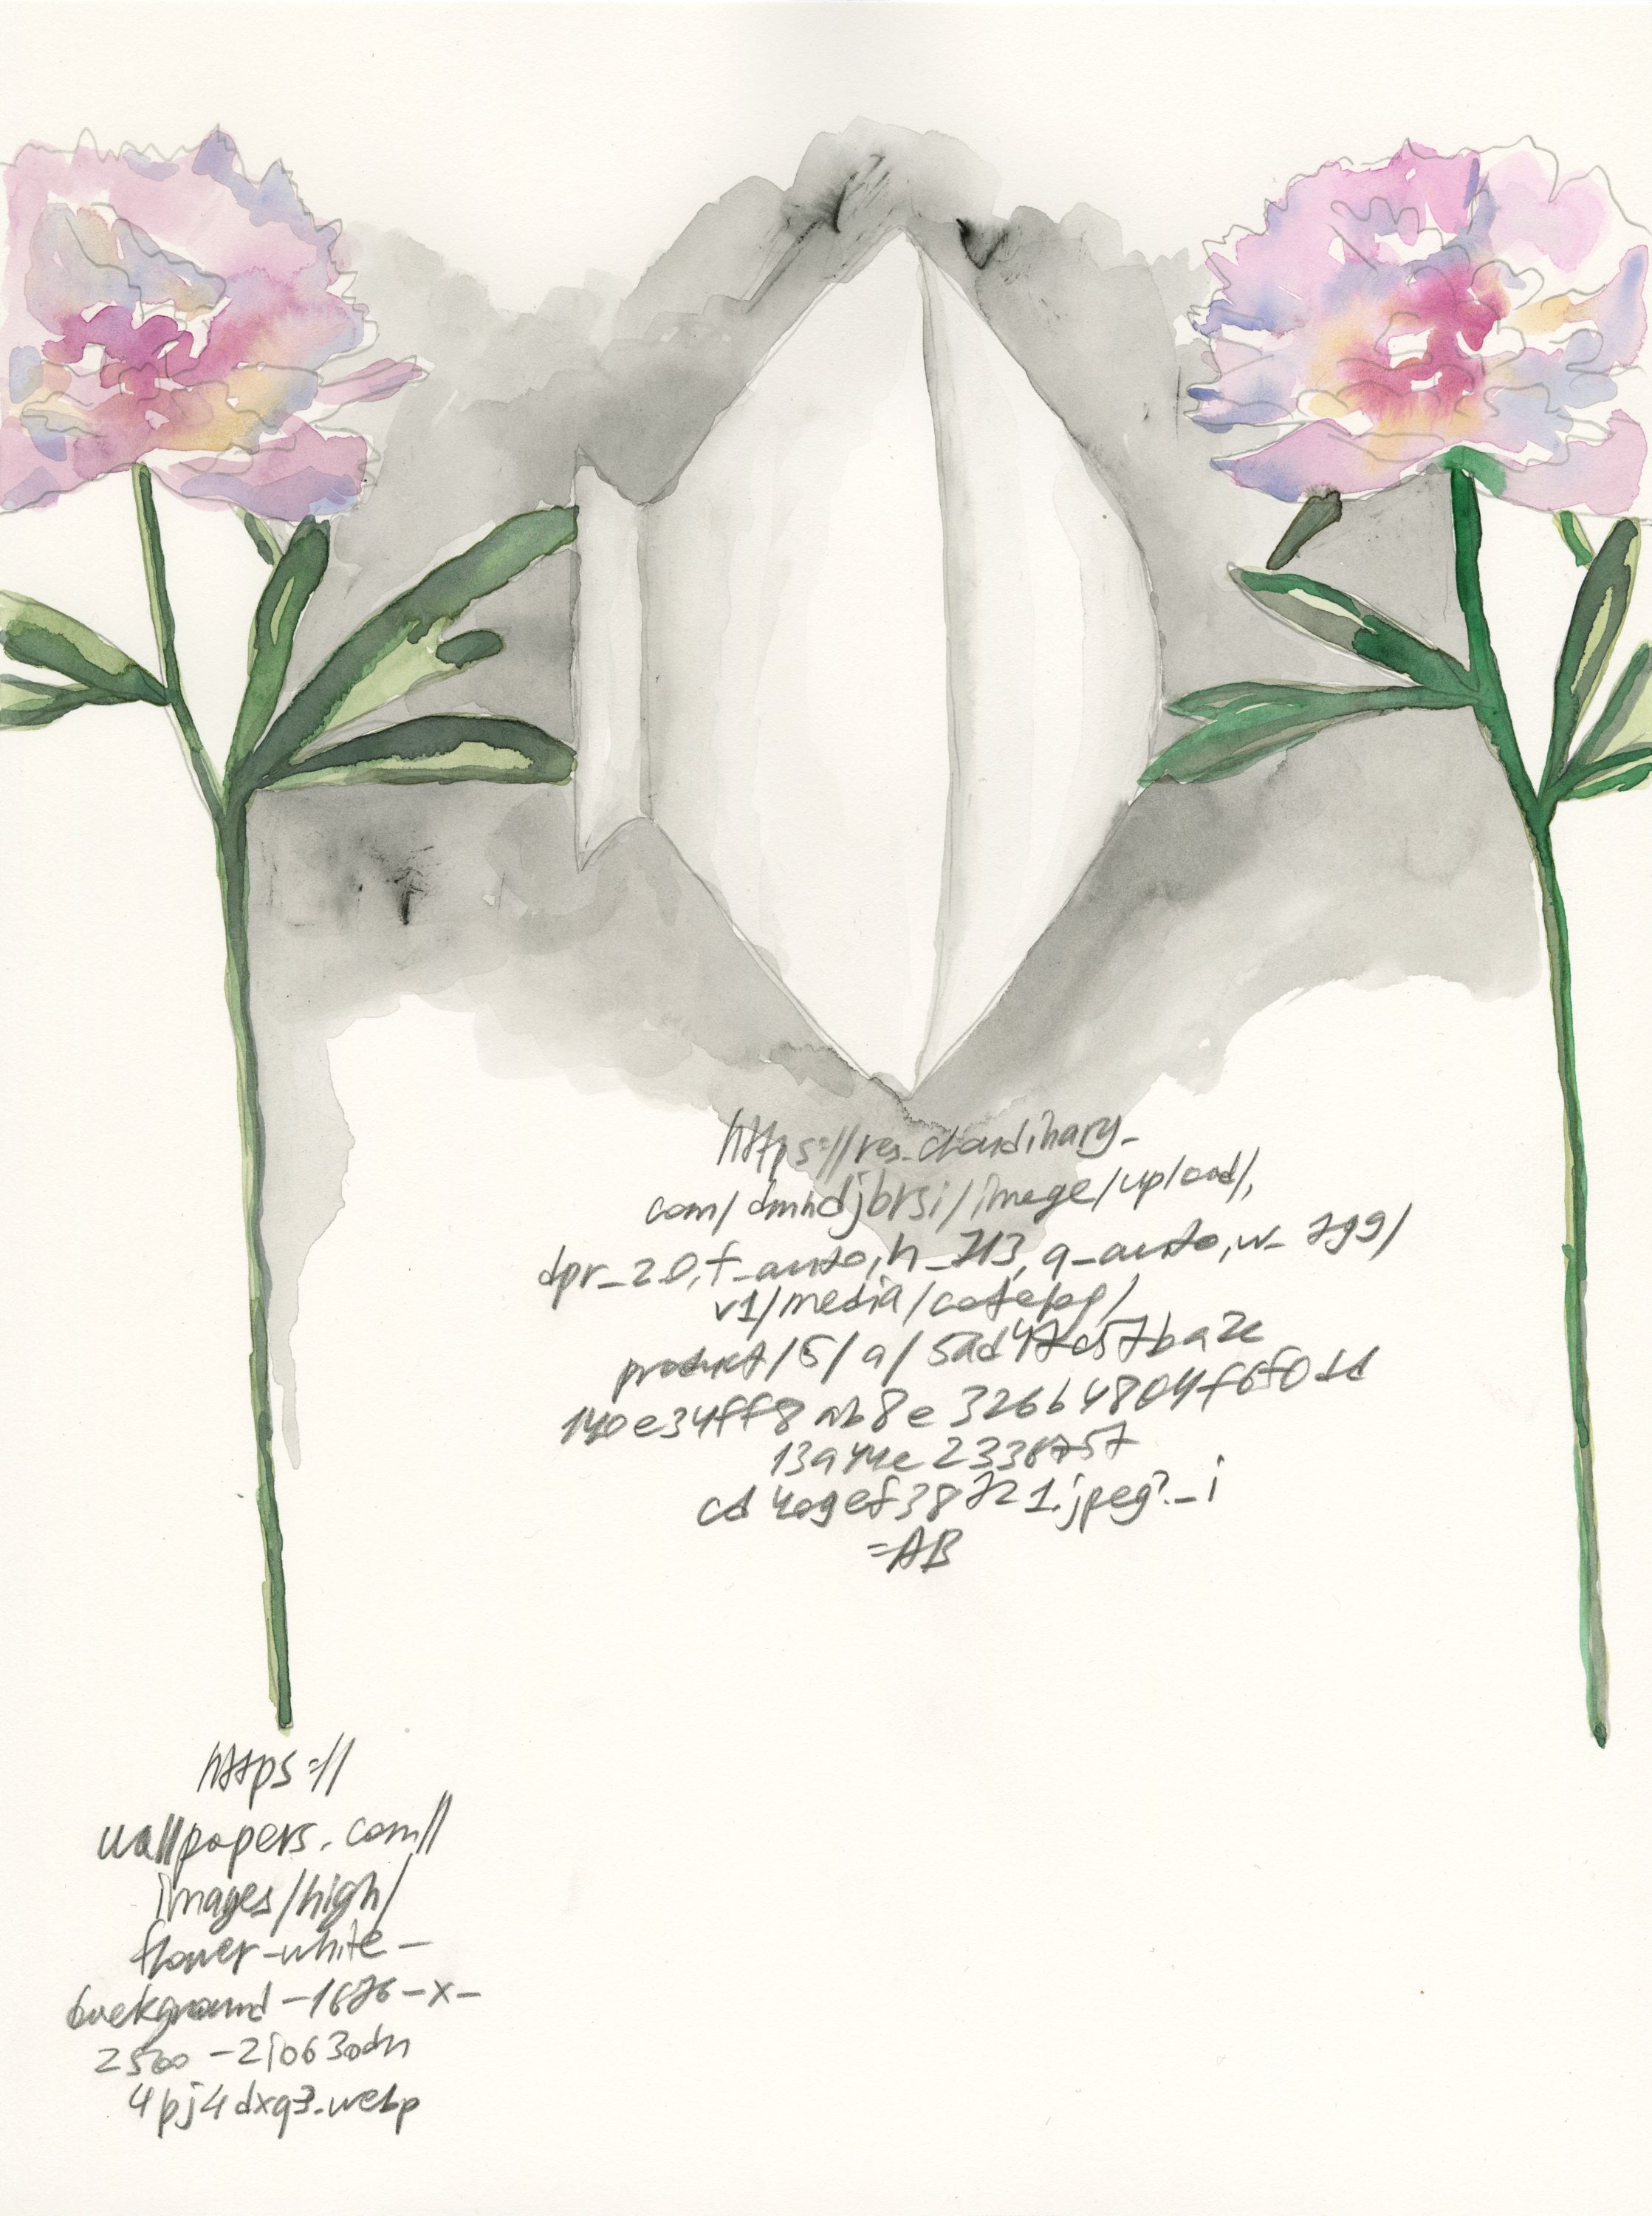 https://res.cloudinary.
com/dmhdjbrsi/image/upload/,
dpr_2.0,f_auto,h_713,q_auto,w_799/
v1/media/catalog/
product/5/a/5ad47d57ba2c
140e34ff8ab8e326b4804f6f0dd
13a44c2338757
cd4agef38721.jpeg?_i
=AB
https://
wallpapers.com//
images/high/
flower-white-
background-1676-x-
2560-2io630dn
4pj4dxq3.webp